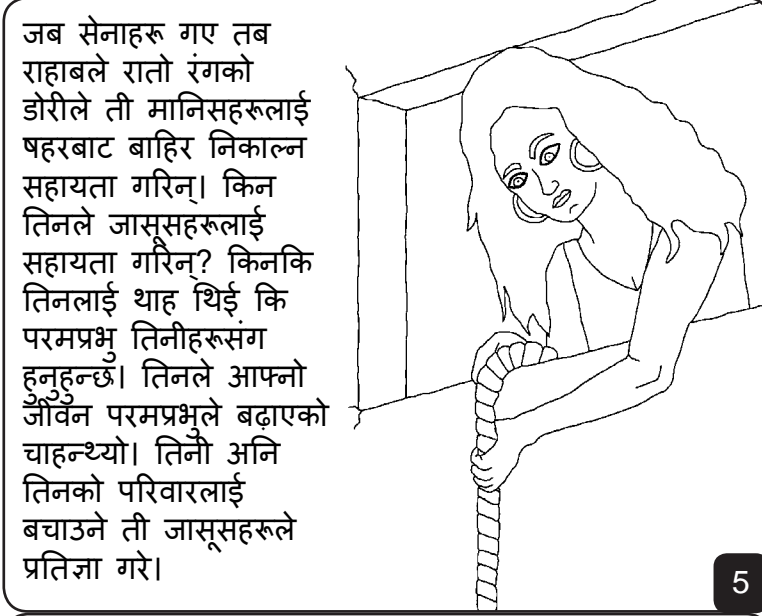 जब सेनाहरू गए तब
राहाबले रातो रंगको
डोरीले ती मानिसहरूलाई
षहरबाट बाहिर निकाल्न
सहायता गरिन्। किन
तिनले जासूसहरूलाई
सहायता गरिन्? किनकि
तिनलाई थाह थिई कि
परमप्रभु तिनीहरूसंग
हुनुहुन्छ। तिनले आफ्नो
जीवन परमप्रभुले बढ़ाएको
चाहन्थ्यो। तिनी अनि
तिनको परिवारलाई
बचाउने ती जासूसहरूले
प्रतिज्ञा गरे।
5